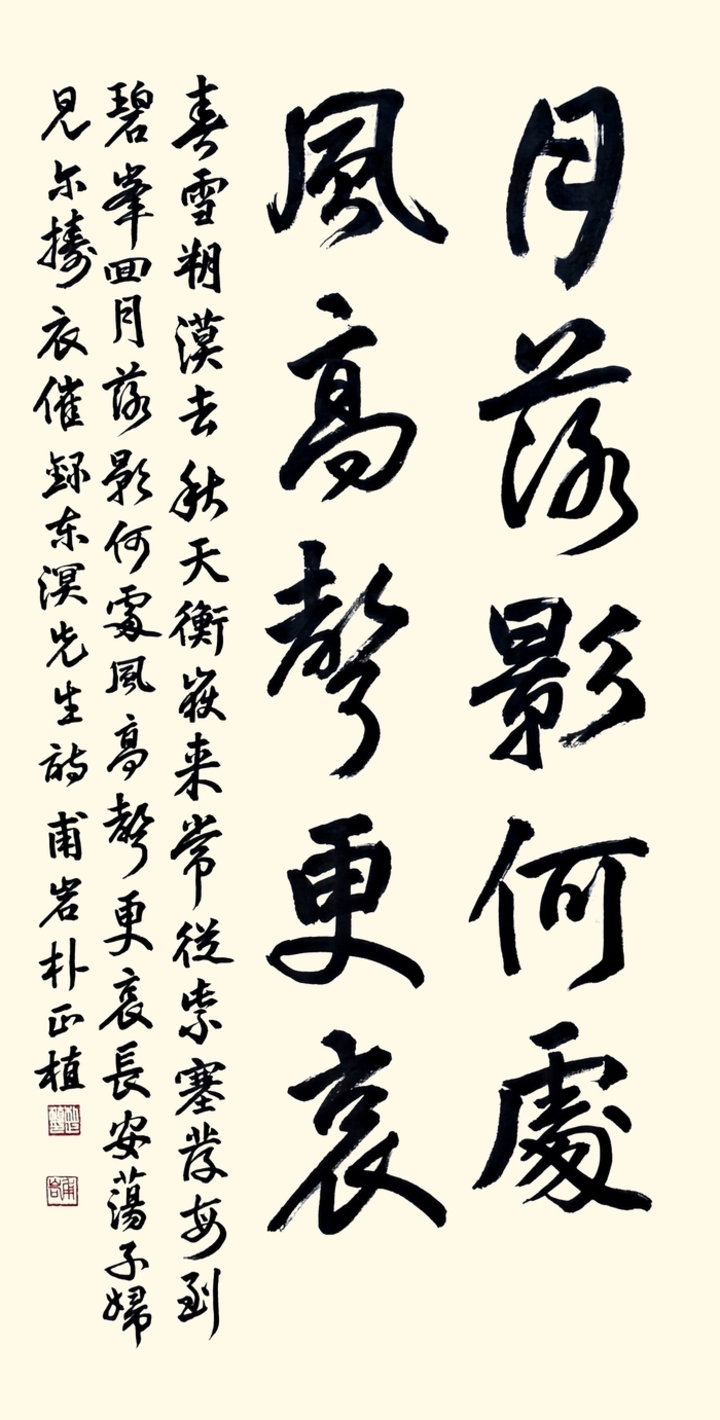 月落影何處
風高聲更哀
春雪朔漠去秋天衡嶽来常從紫塞發每到
碧峯回月落影何處風高聲更哀長安蕩子婦
見尔擣衣催錄东溟先生詩甫岩朴正植